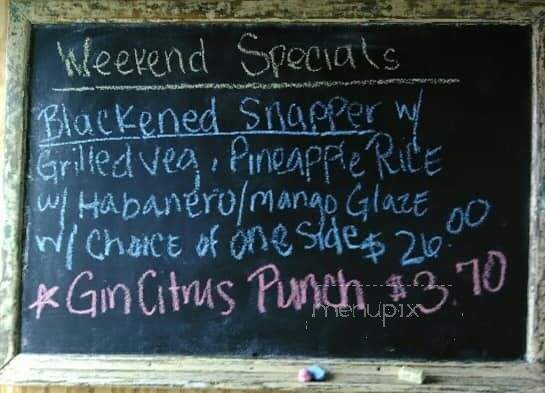 Weekend Specials
Blackened Snapper w/
Grilled Veg, Pineapple Rice
w/ Habanero/mango Glaze
w/ Choice of one side $26.00
* Gin Citrus Punch $3.70
menupix